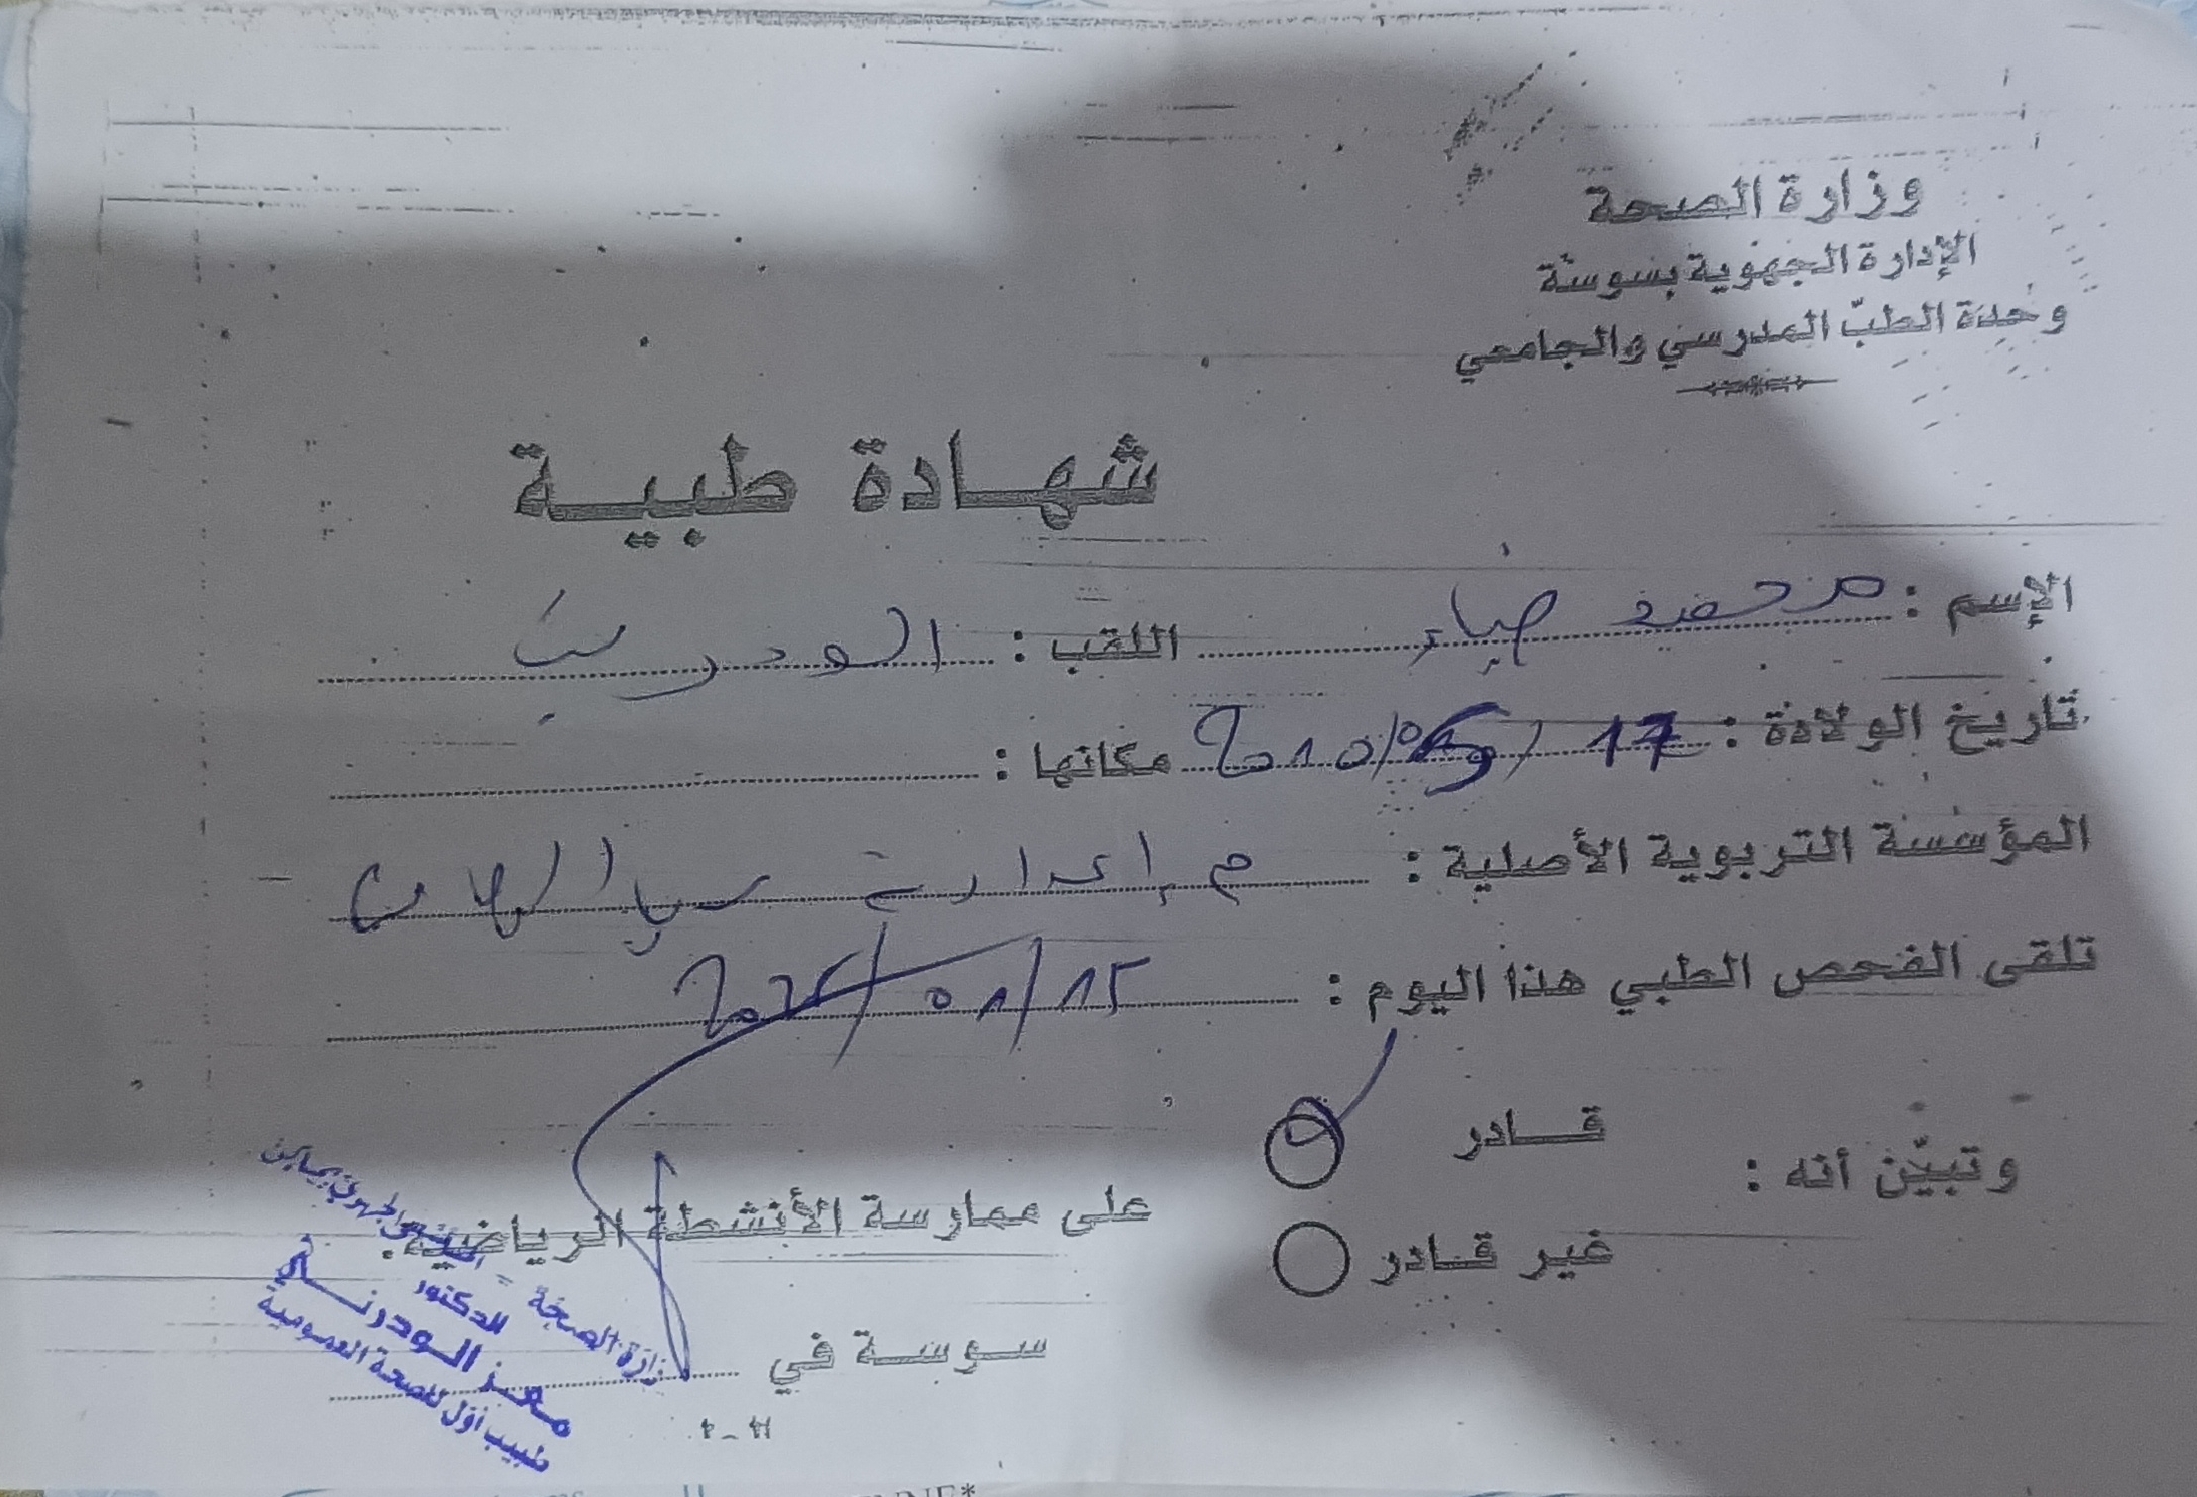 وزارة الصحة
الإدارة الجهوية بسوسة
وحدة الطبّ المدرسي والجامعي
شهادة طبية
الإسم : محمد ضياء اللقب : الودرني
تاريخ الولادة : 17 / 05 / 2010 مكانها :
المؤسسة التربوية الأصلية : م إعدادية
تلقى الفحص الطبي هذا اليوم : 15 / 01 /
وتبيّن أنه : قادر
غير قادر
على ممارسة الأنشطة الرياضية.
سوسة في
وزارة الصحة
الدكتور
معز الودرنـي
طبيب أول للصحة العمومية